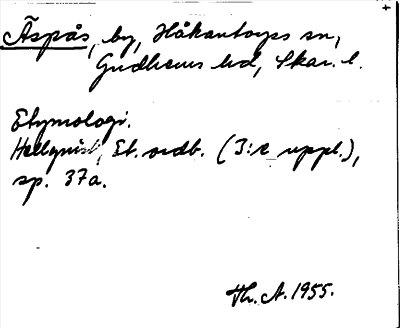 Äspås, by, Håkantorps sn,
Gudhems hd, Skar. l.
Etymologi.
Hellquist, Et. ordb. (3:e uppl.),
sp. 37a.
Th. A. 1955.